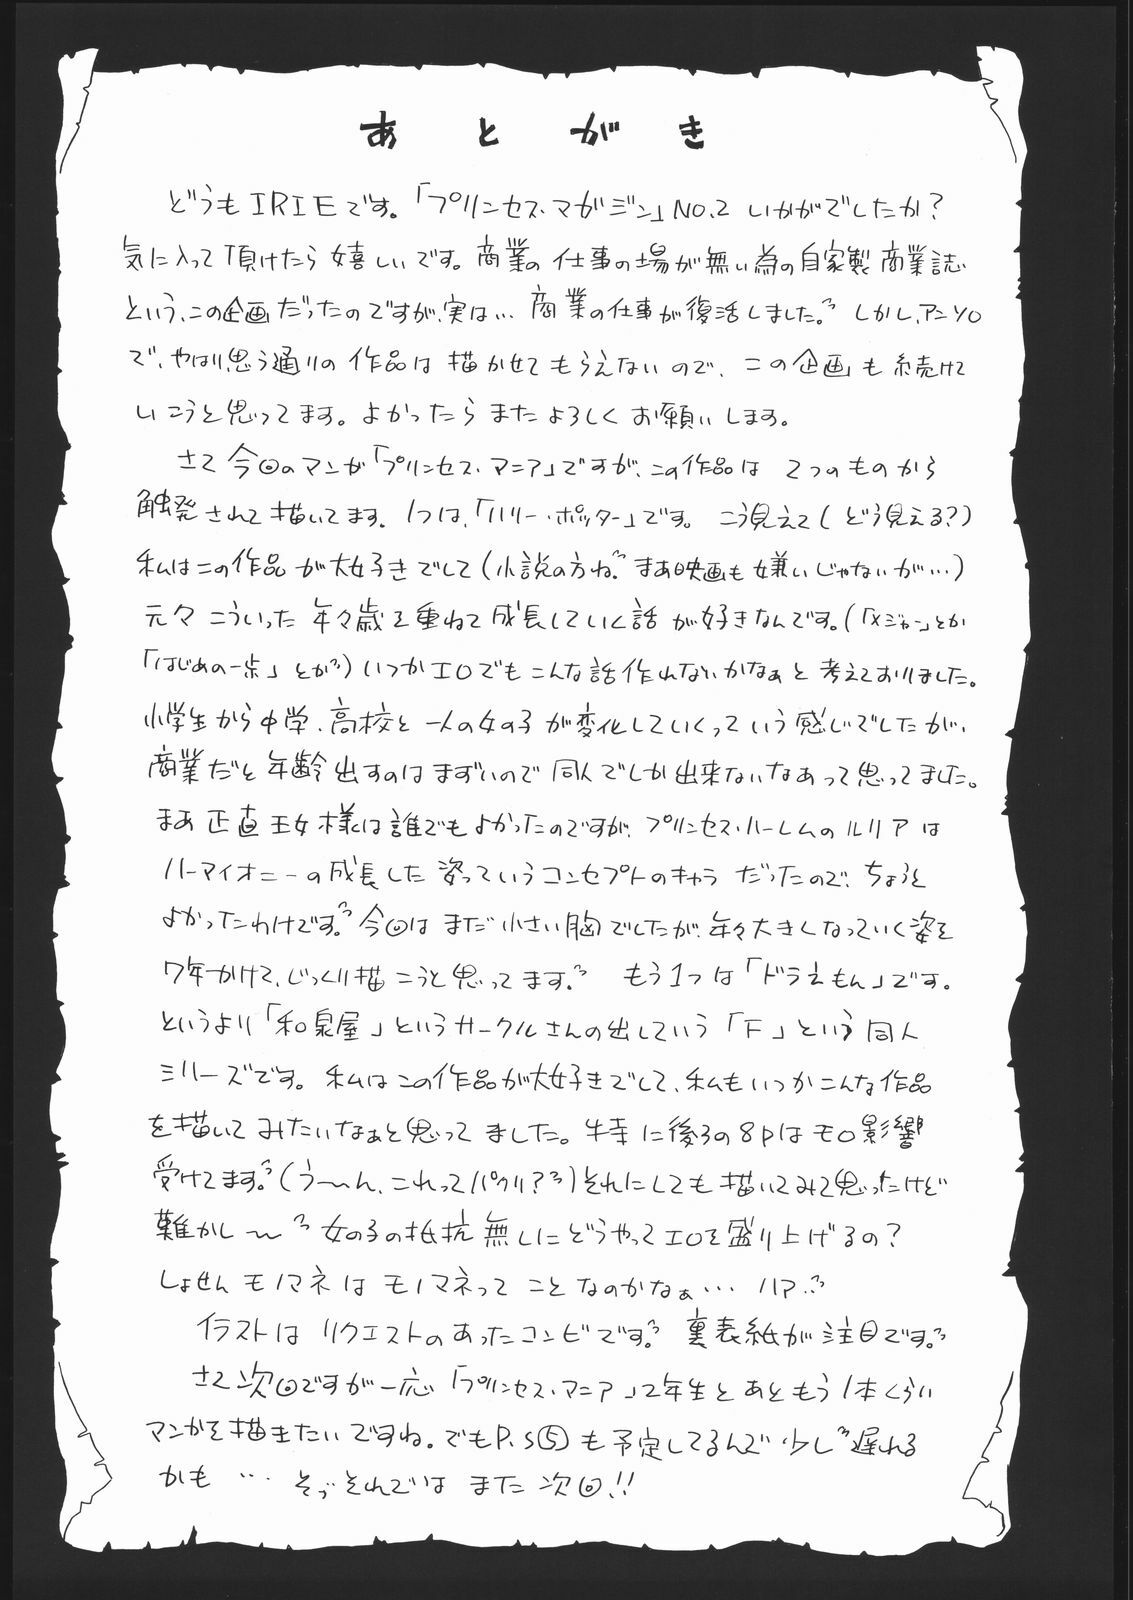 あとがき
どうもIRIEです。「プリンセス・マガジン」NO.2 いかがでしたか?
気に入って頂けたら嬉しいです。商業の仕事の場が無い為の自家製商業誌
という、この企画だったのですが、実は… 商業の仕事が復活しました。しかし、アンソロ
で、やはり思う通りの作品は描かせてもらえないので、この企画も続けて
いこうと思ってます。よかったらまたよろしくお願いします。
さて今回のマンガ「プリンセス・マニア」ですが、この作品は 2つのものから
触発されて描いてます。1つは、「ハリー・ポッター」です。こう見えて(どう見える?)
私はこの作品が大好きでして(小説の方ね。まあ映画も嫌いじゃないが…)
元々こういった年々歳を重ねて成長していく話が好きなんです。(「メジャー」とか
「はじめの一歩」とか)いつかエロでもこんな話作れないかなぁと考えておりました。
小学生から中学、高校と一人の女の子が変化していくっていう感じでしたが、
商業だと年齢出すのはまずいので同人でしか出来ないなあって思ってました。
まあ正直王女様は誰でもよかったのですが、プリンセス・ハーレムのルリアは
ハーマイオニーの成長した姿っていうコンセプトのキャラだったので、ちょうど
よかったわけです。今回はまだ小さい胸でしたが、年々大きくなっていく姿を
7年かけて、じっくり描こうと思ってます。もう1つは「ドラえもん」です。
というより「和泉屋」というサークルさんの出している「F」という同人
シリーズです。私はこの作品が大好きでして、私もいつかこんな作品
を描いてみたいなぁと思ってました。特に後ろの8Pはモロ影響
受けてます。(う〜ん、これってパクリ?)それにしても描いてみて思ったけど
難かし〜 女の子の抵抗無しにどうやってエロを盛り上げるの?
しょせんモノマネはモノマネってことなのかなぁ… ハァ…
イラストはリクエストのあったコンビです。裏表紙が注目です。
さて次回ですが一応「プリンセス・マニア」2年生とあともう1本くらい
マンガを描きたいですね。でもP.S⑤も予定してるんで少し遅れる
かも … そっそれではまた次回!!